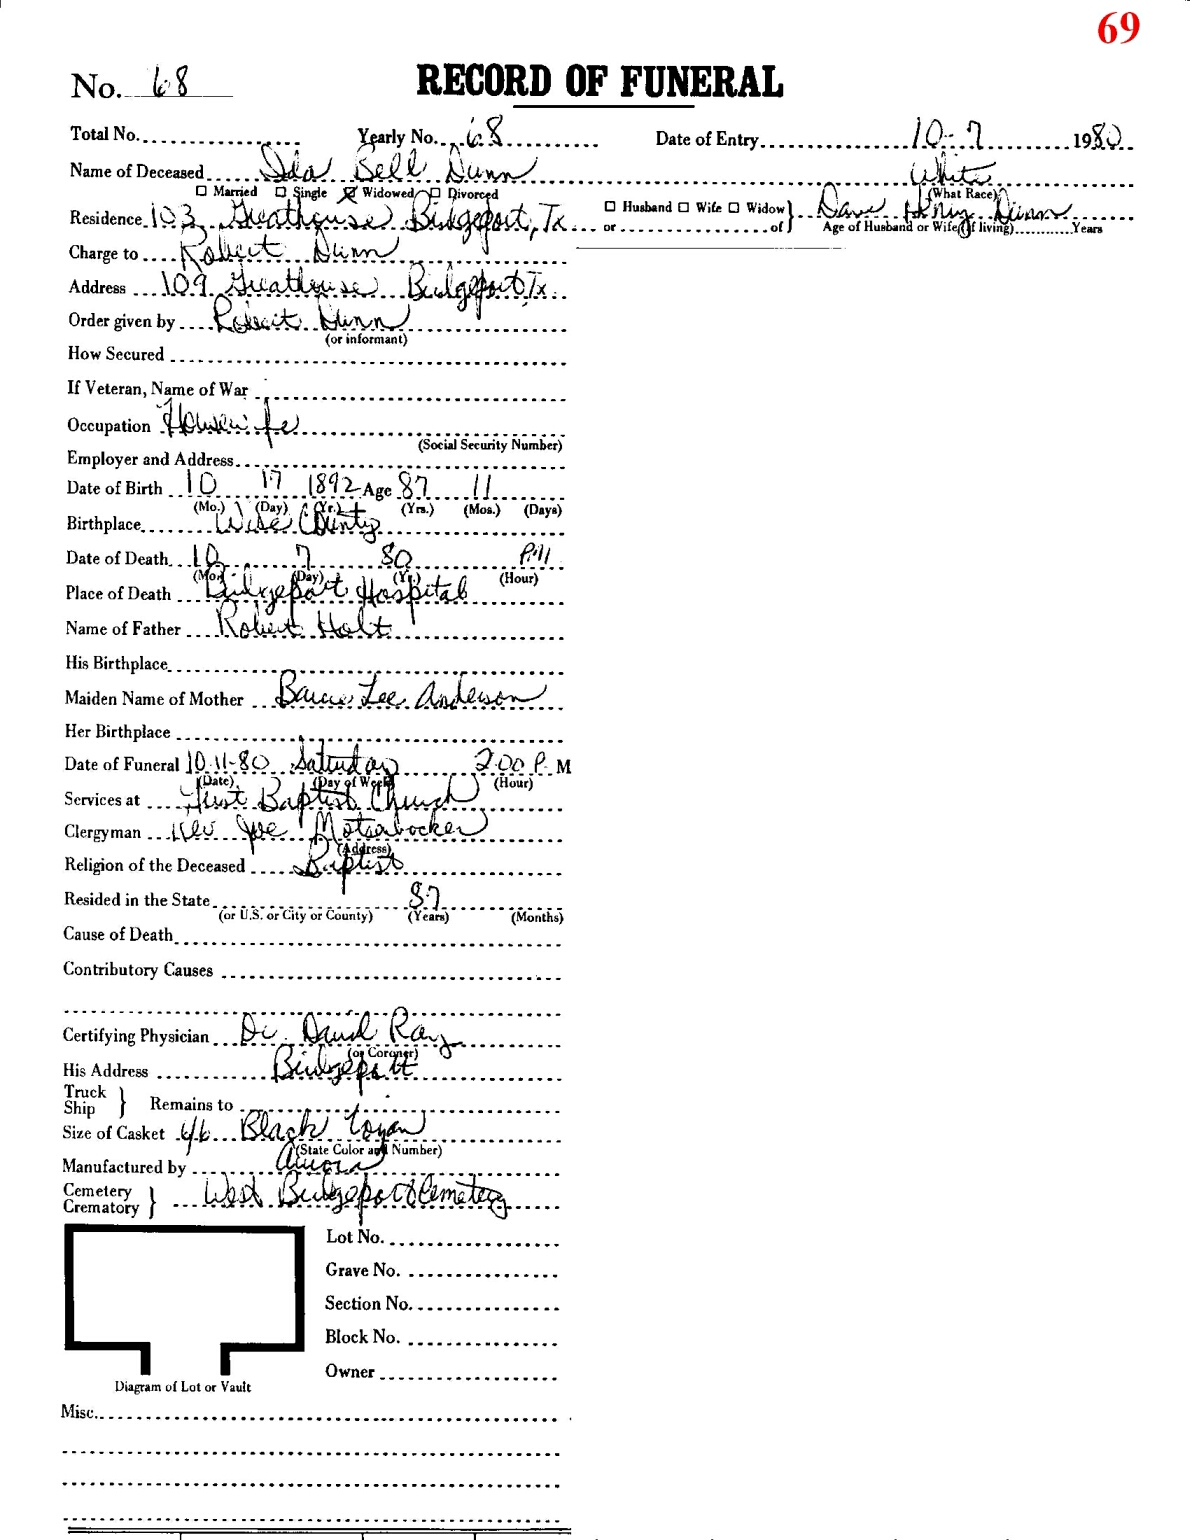 69
No. 68 RECORD OF FUNERAL
Total No. Yearly No. 68 Date of Entry 10-7 1980
Name of Deceased Ida Bell Dunn White
☐ Married ☐ Single ☒ Widowed ☐ Divorced (What Race)
Residence 103 Greathouse Bridgeport, Tx ☐ Husband ☐ Wife ☐ Widow } Dave Dunn
or of } Age of Husband or Wife (if living) Years
Charge to Robert Dunn
Address 109 Greathouse Bridgeport, Tx
Order given by Robert Dunn
(or informant)
How Secured
If Veteran, Name of War
Occupation Housewife
(Social Security Number)
Employer and Address
Date of Birth 10 17 1892 Age 87 11
(Mo.) (Day) (Yr.) (Yrs.) (Mos.) (Days)
Birthplace Wise County
Date of Death 10 7 80 P.M.
(Mo.) (Day) (Yr.) (Hour)
Place of Death Bridgeport Hospital
Name of Father Robert Holt
His Birthplace
Maiden Name of Mother Lee Anderson
Her Birthplace
Date of Funeral 10-11-80 Saturday 2:00 P. M
(Date) (Day of Week) (Hour)
Services at First Baptist Church
Clergyman Rev Joe
(Address)
Religion of the Deceased Baptist
Resided in the State 87
(or U.S. or City or County) (Years) (Months)
Cause of Death
Contributory Causes
Certifying Physician Dr. David Ray
(or Coroner)
His Address Bridgeport
Truck
Ship } Remains to
Size of Casket 6/6 Black
(State Color and Number)
Manufactured by Aurora
Cemetery
Crematory } West Bridgeport Cemetery
Lot No.
Grave No.
Section No.
Block No.
Owner
Diagram of Lot or Vault
Misc.